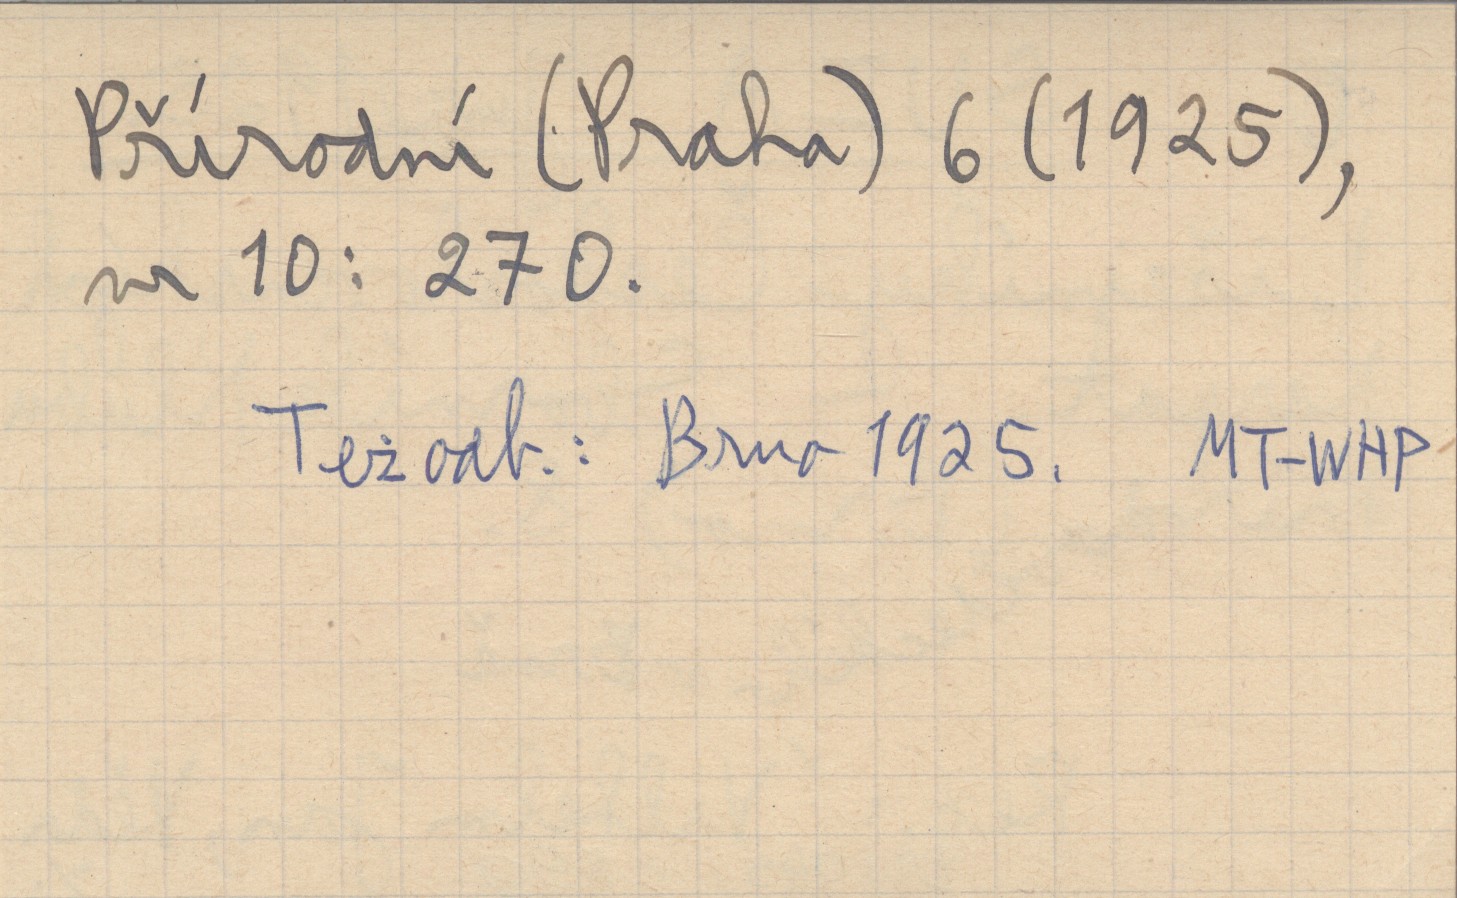 Přírodní (Praha) 6 (1925),
nr 10: 270.
Też odb.: Brno 1925. MT-WHP